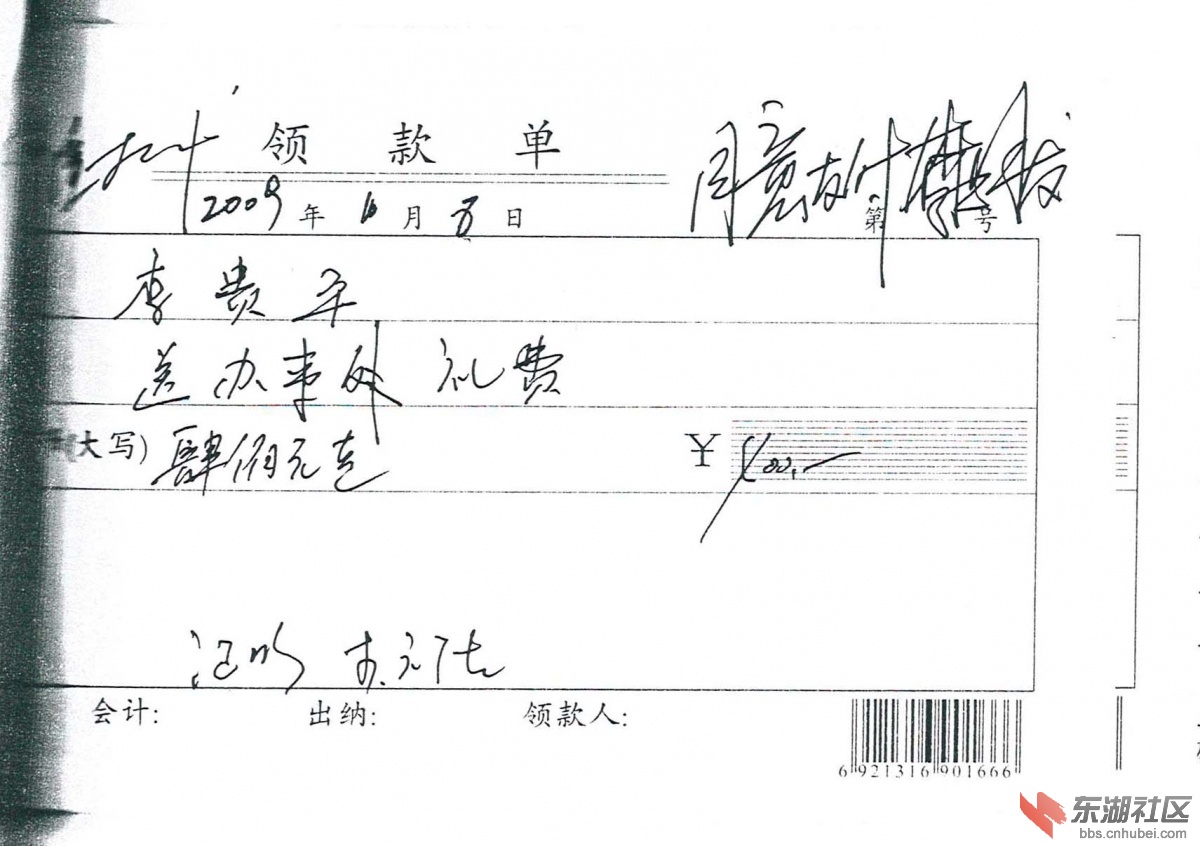 领款单
同意支付
2009年6月8日
第 号
李贵平
送办事处 礼费
(大写) 肆佰元正 ￥400.-
会计: 出纳: 领款人:
6 921316 901666
东湖社区
bbs.cnhubei.com